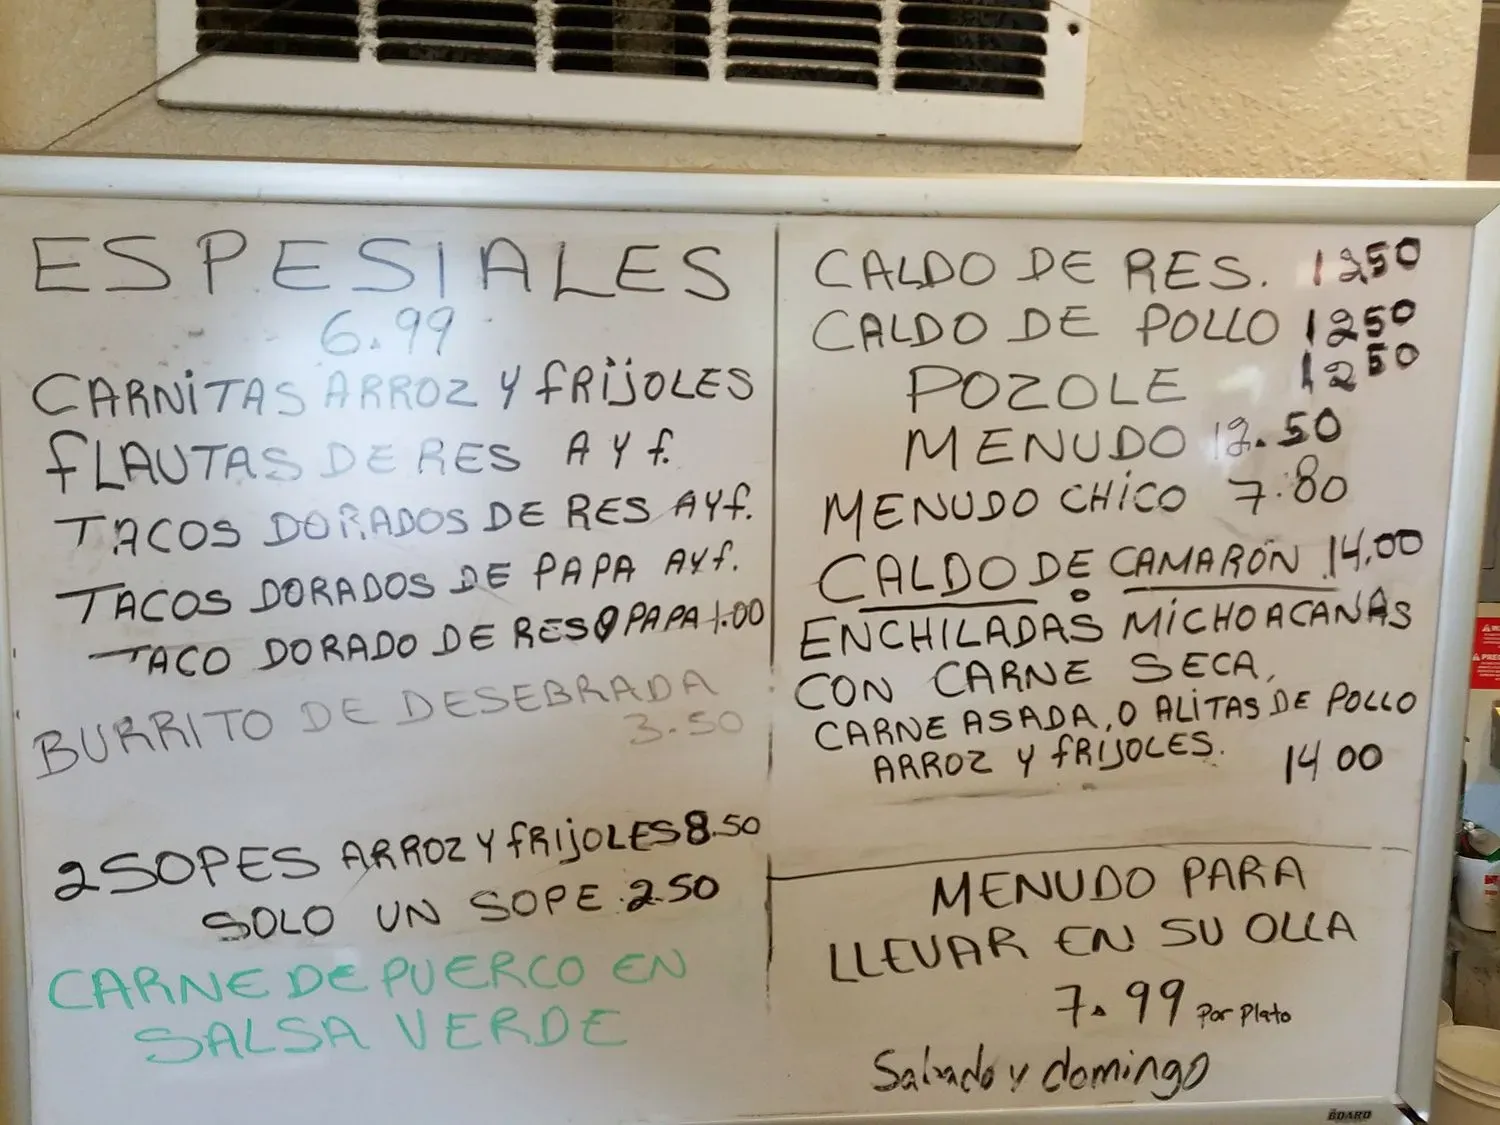 ESPESIALES
6.99
CARNiTAS ARROZ Y fRiJOLES
fLAUTAS DE RES A Y f.
TACOS DORADOS DE RES AYf.
TACOS DORADOS DE PAPA AYf.
TACO DORADO DE RES O PAPA 1.00
BURRITO DE DESEBRADA
3.50
2 SOPES ARROZ Y fRIJOLES 8.50
SOLO UN SOPE 2.50
CARNE DE PUERCO EN
SALSA VERDE
CALDO DE RES. 1250
CALDO DE POLLO 1250
POZOLE 1250
MENUDO 12.50
MENUDO CHiCO 7.80
CALDO DE CAMARÓN 14.00
ENCHILADAS MiCHOACANAS
CON CARNE SECA,
CARNE ASADA, O ALITAS DE POLLO
ARROZ Y fRIJOLES.
14 00
MENUDO PARA
LLEVAR EN SU OLLA
7.99 Por Plato
Salvado y domingo
BOARD